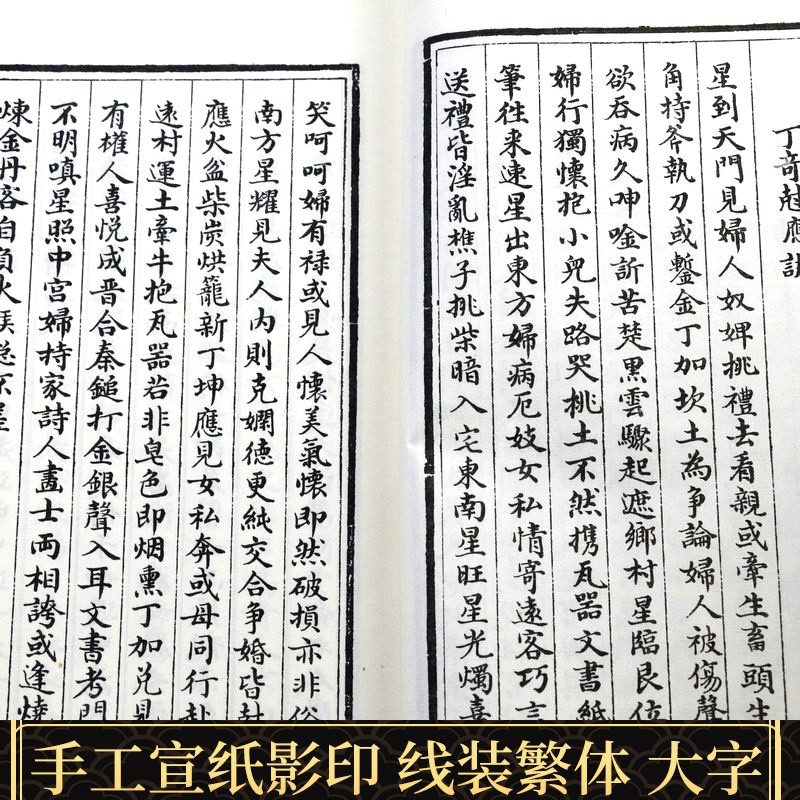 丁奇尅應訣
星到天門見婦人奴婢挑禮去看親或牽生畜頭生
角持斧執刀或鏨金丁加坎土為爭論婦人被傷聲
欲吞病久呻唫訢苦楚黑雲驟起遮鄉村星臨艮位
婦行獨懷抱小兒失路哭桃土不然携瓦器文書紙
筆徃来速星出東方婦病厄妓女私情寄遠客巧言
送禮皆淫亂樵子挑柴暗入宅東南星旺星光燭喜
笑呵呵婦有禄或見人懷美氣懷即然破損亦非俗
南方星耀見夫人內則克嫻德更純交合争婚皆
應火盆柴炭烘籠新丁坤應見女私奔或母同行赴
逺村運土牽牛抱瓦器若非皂色即烟熏丁加兑見
有權人喜悦成晋合秦鎚打金銀聲入耳文書考門
不明嗔星照中宮婦持家詩人畫士両相誇或逢燒
煉金丹客自負火
手工宣纸影印 线装繁体 大字